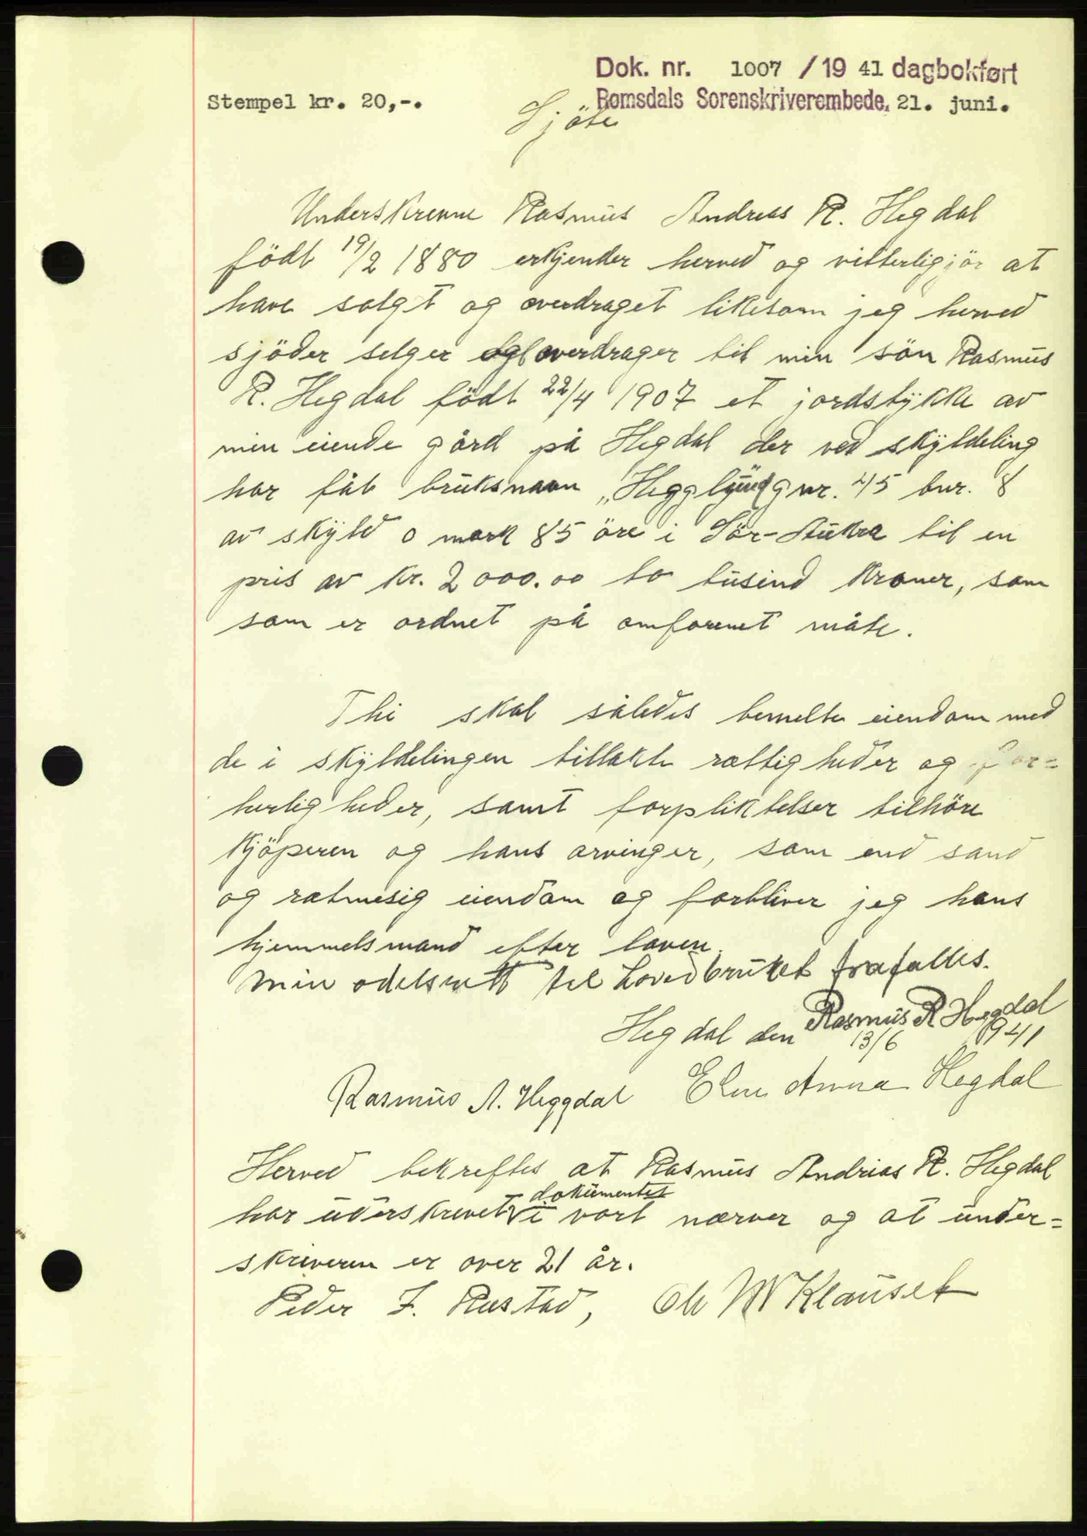 Dok. nr. 1007 / 19 41 dagbokført
Stempel kr. 20,-. Romsdals Sorenskriverembede, 21. juni.
Sjöte
Underskrevne Rasmus Andreas R. Hegdal
födt 19/2 1880 erkjender herved og vitterligjör at
have solgt og overdraget likesom jeg herved
sjöder selger og overdrager til min sön Rasmus
R. Hegdal födt 22/4 1907 et jordstykke av
min eiende gård på Hegdal der ved skyldeling
har fåt bruksnavn „Hegglund" gnr. 45 bnr. 8
av skyld 0 mark 85 öre i Sör-Aukra til en
pris av kr. 2000.00 to tusind kroner, som
som er ordnet på omforenet måte.
Thi skal således bemelte eiendom med
de i skyldelingen tillakte rettigheder og for=
herligheder, samt forpliktelser tilhöre
kjöperen og hans arvinger, som end sand
og retmesig eiendom og forbliver jeg hans
hjemmelsmand efter loven.
Min odelsrett til hovedbruket frafalles.
Rasmus R Hegdal
Hegdal den 13/6 1941
Rasmus A. Heggdal Anna Hegdal
Herved bekreftes at Rasmus Andrias R. Hegdal
dokumentet
har uderskrevet i vort nærver og at under=
skriveren er over 21 år.
Peder J. Rustad, Klauset